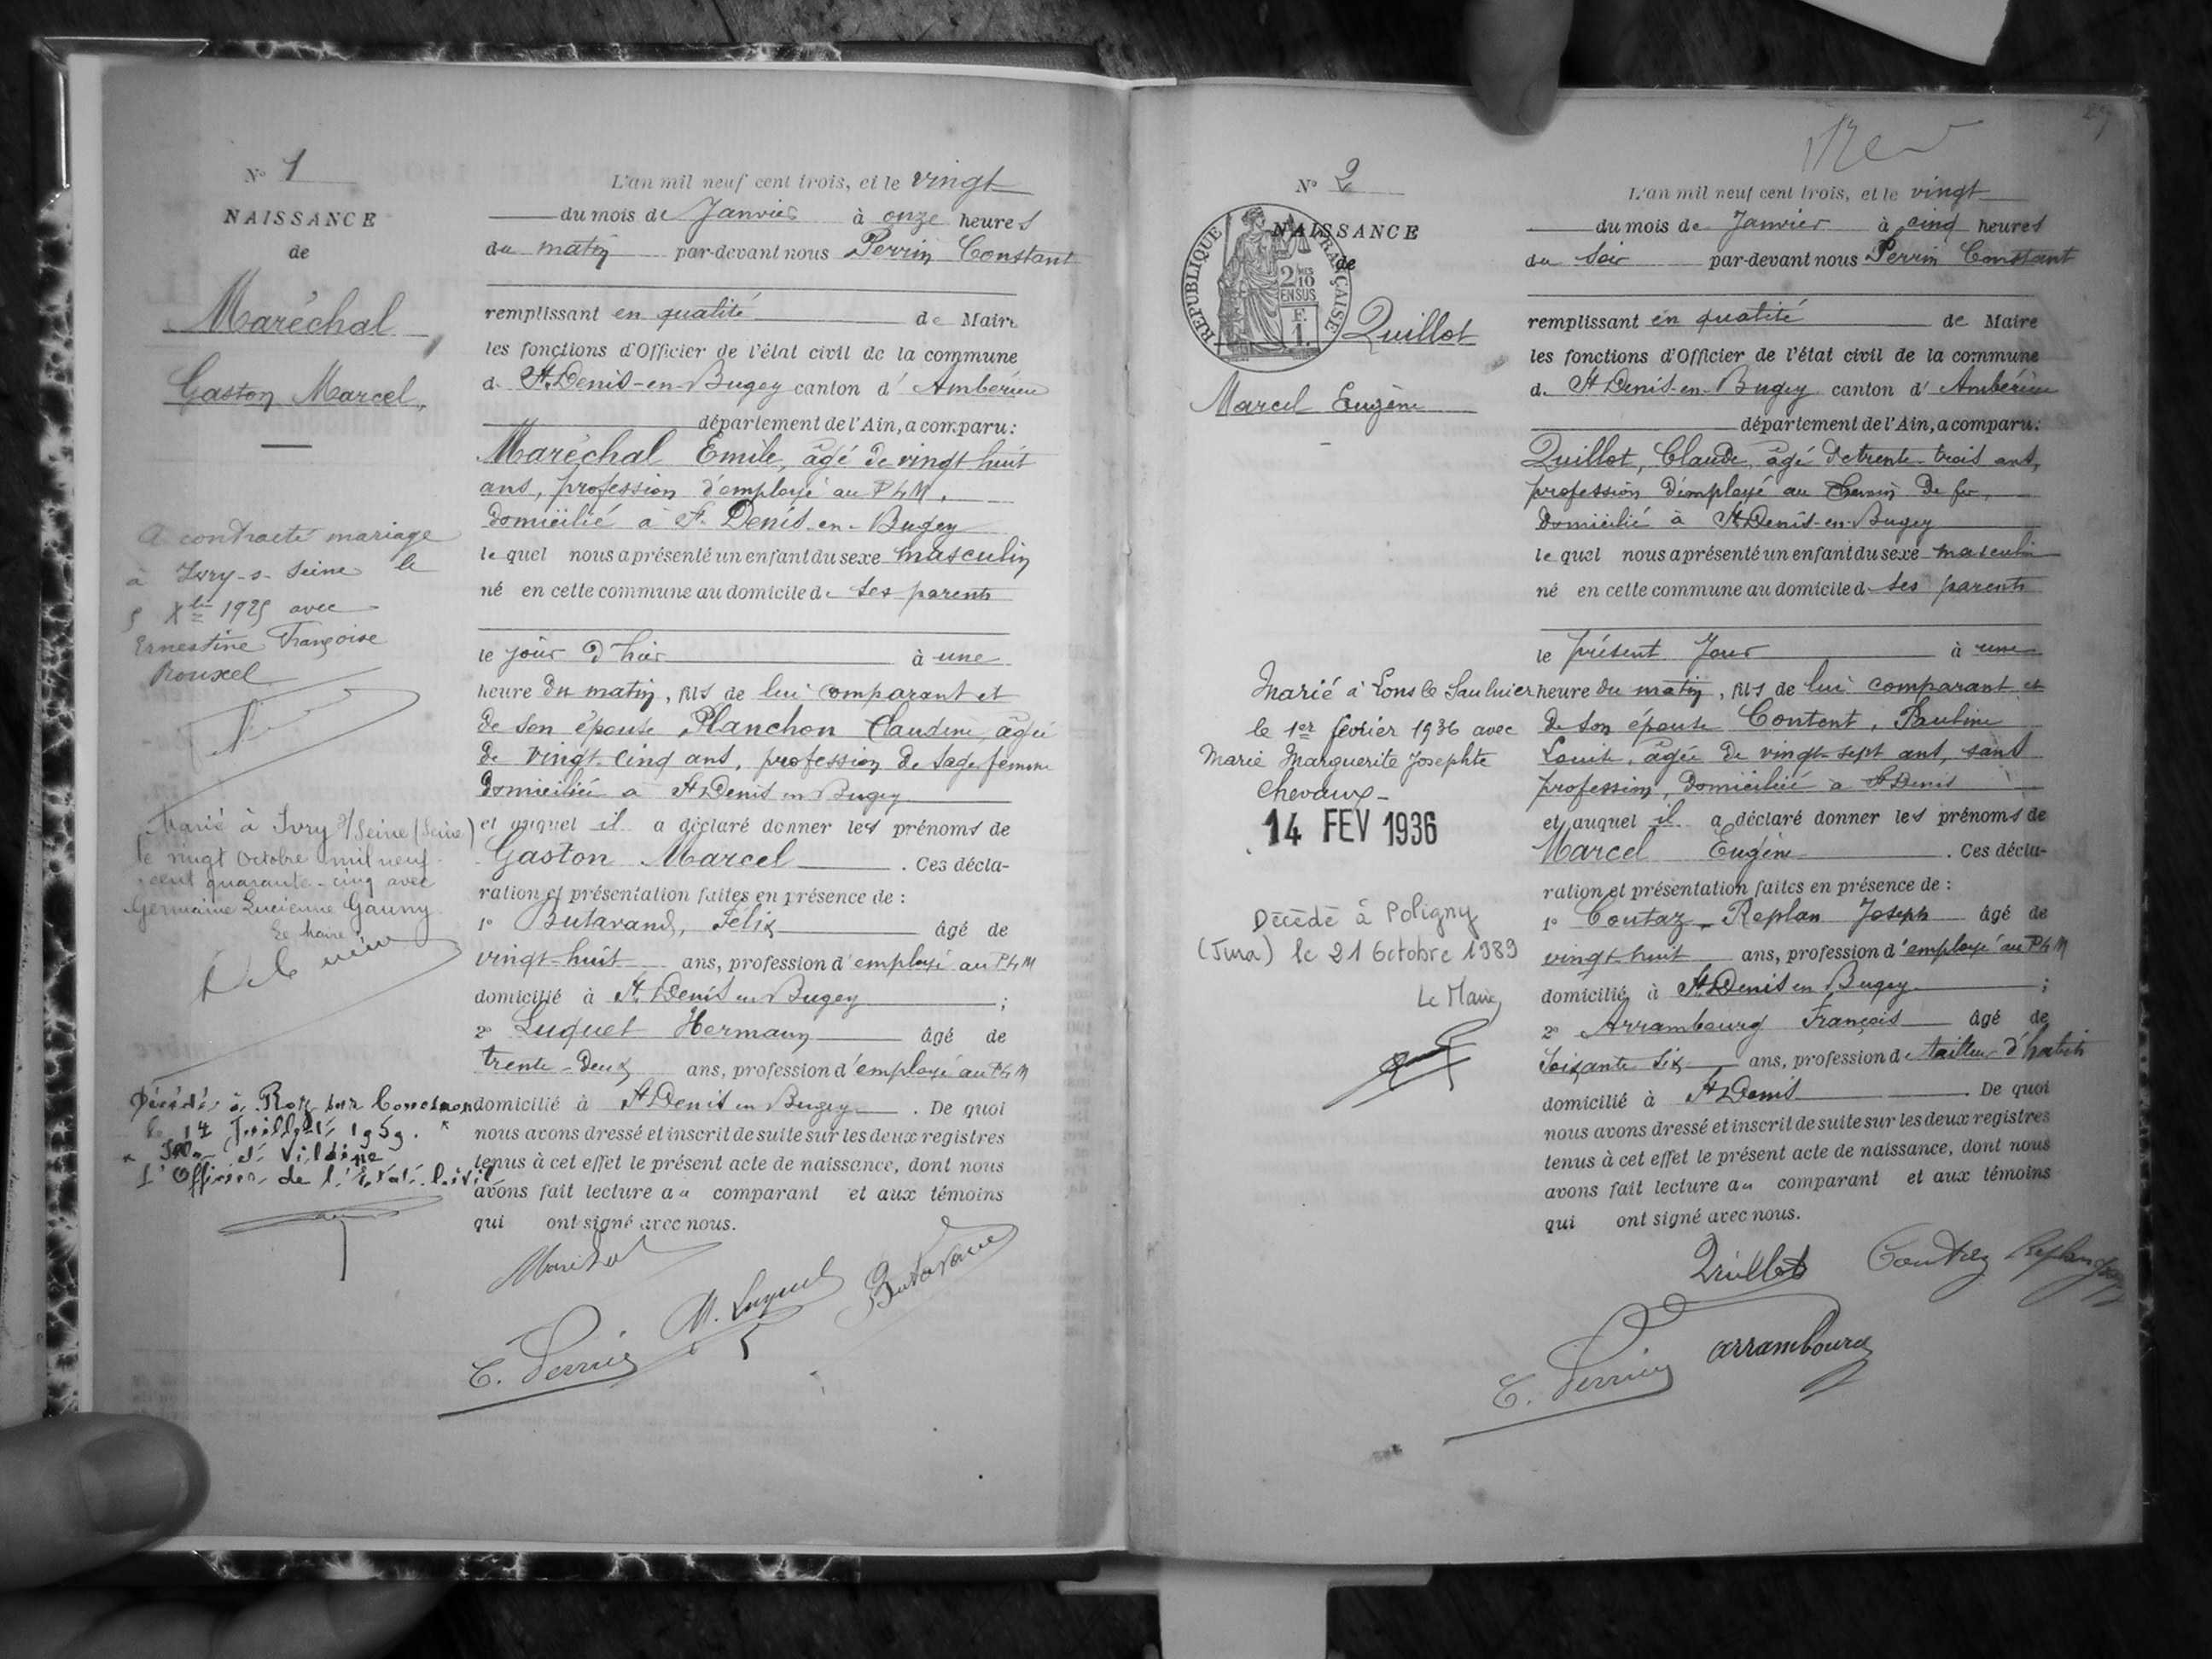 N° 1
NAISSANCE
de
Maréchal
Gaston Marcel,
a contracté mariage
à Ivry-s-Seine le
5 Xbre 1925 avec
Ernestine Françoise
Rouxel
Marié à Ivry s/ Seine (Seine)
le vingt octobre mil neuf
cent quarante-cinq avec
Germaine Lucienne Gauny
Le Maire
Décédé à Roz sur Couesnon
le 14 Juillet 1959.
L'Officier de l'Etat Civil
L'an mil neuf cent trois, et le vingt
du mois de Janvier à onze heures
du matin par-devant nous Perrin Constant
remplissant en qualité de Maire
les fonctions d'Officier de l'état civil de la commune
de St Denis-en-Bugey canton d'Ambérieu
département de l'Ain, a comparu:
Maréchal Emile, âgé de vingt huit
ans, profession d'employé au PLM,
domicilié à St Denis-en-Bugey
lequel nous a présenté un enfant du sexe masculin
né en cette commune au domicile de ses parents
le jour d'hier à une
heure du matin, fils de lui comparant et
de son épouse Planchon Claudine, âgée
de vingt-cinq ans, profession de sage femme
domiciliée à St Denis en Bugey
et auquel il a déclaré donner les prénoms de
Gaston Marcel. Ces décla-
ration et présentation faites en présence de :
1° Butavand, Félix âgé de
vingt-huit ans, profession d'employé au PLM
domicilié à St Denis en Bugey ;
2° Luquet Hermann âgé de
trente-deux ans, profession d'employé au PLM
domicilié à St Denis en Bugey. De quoi
nous avons dressé et inscrit de suite sur les deux registres
tenus à cet effet le présent acte de naissance, dont nous
avons fait lecture au comparant et aux témoins
qui ont signé avec nous.
Maréchal
C. Perrin H. Luquet Butavand
N° 2
NAISSANCE
de
RÉPUBLIQUE FRANÇAISE
2/10 EN SUS
F. 1.
Quillot
Marcel Eugène
Marié à Lons le Saulnier
le 1er février 1936 avec
Marie Marguerite Josephte
Chevaux-
14 FEV 1936
Décédé à Poligny
(Jura) le 21 Octobre 1989
Le Maire,
L'an mil neuf cent trois, et le vingt
du mois de Janvier à cinq heures
du soir par-devant nous Perrin Constant
remplissant en qualité de Maire
les fonctions d'Officier de l'état civil de la commune
de St Denis-en-Bugey canton d'Ambérieu
département de l'Ain, a comparu:
Quillot, Claude, âgé de trente-trois ans,
profession d'employé au Chemin de fer,
domicilié à St Denis-en-Bugey
lequel nous a présenté un enfant du sexe masculin
né en cette commune au domicile de ses parents
le présent jour à une
heure du matin, fils de lui comparant et
de son épouse Content, Pauline
Louise, âgée de vingt-sept ans, sans
profession, domiciliée à St Denis
et auquel il a déclaré donner les prénoms de
Marcel Eugène. Ces décla-
ration et présentation faites en présence de :
1° Coutaz-Replan Joseph âgé de
vingt-huit ans, profession d'employé au PLM
domicilié à St Denis en Bugey ;
2° Arrambourg François âgé de
soixante six ans, profession de tailleur d'habits
domicilié à St Denis. De quoi
nous avons dressé et inscrit de suite sur les deux registres
tenus à cet effet le présent acte de naissance, dont nous
avons fait lecture au comparant et aux témoins
qui ont signé avec nous.
Quillot Coutaz Replan
C. Perrin Arrambourg